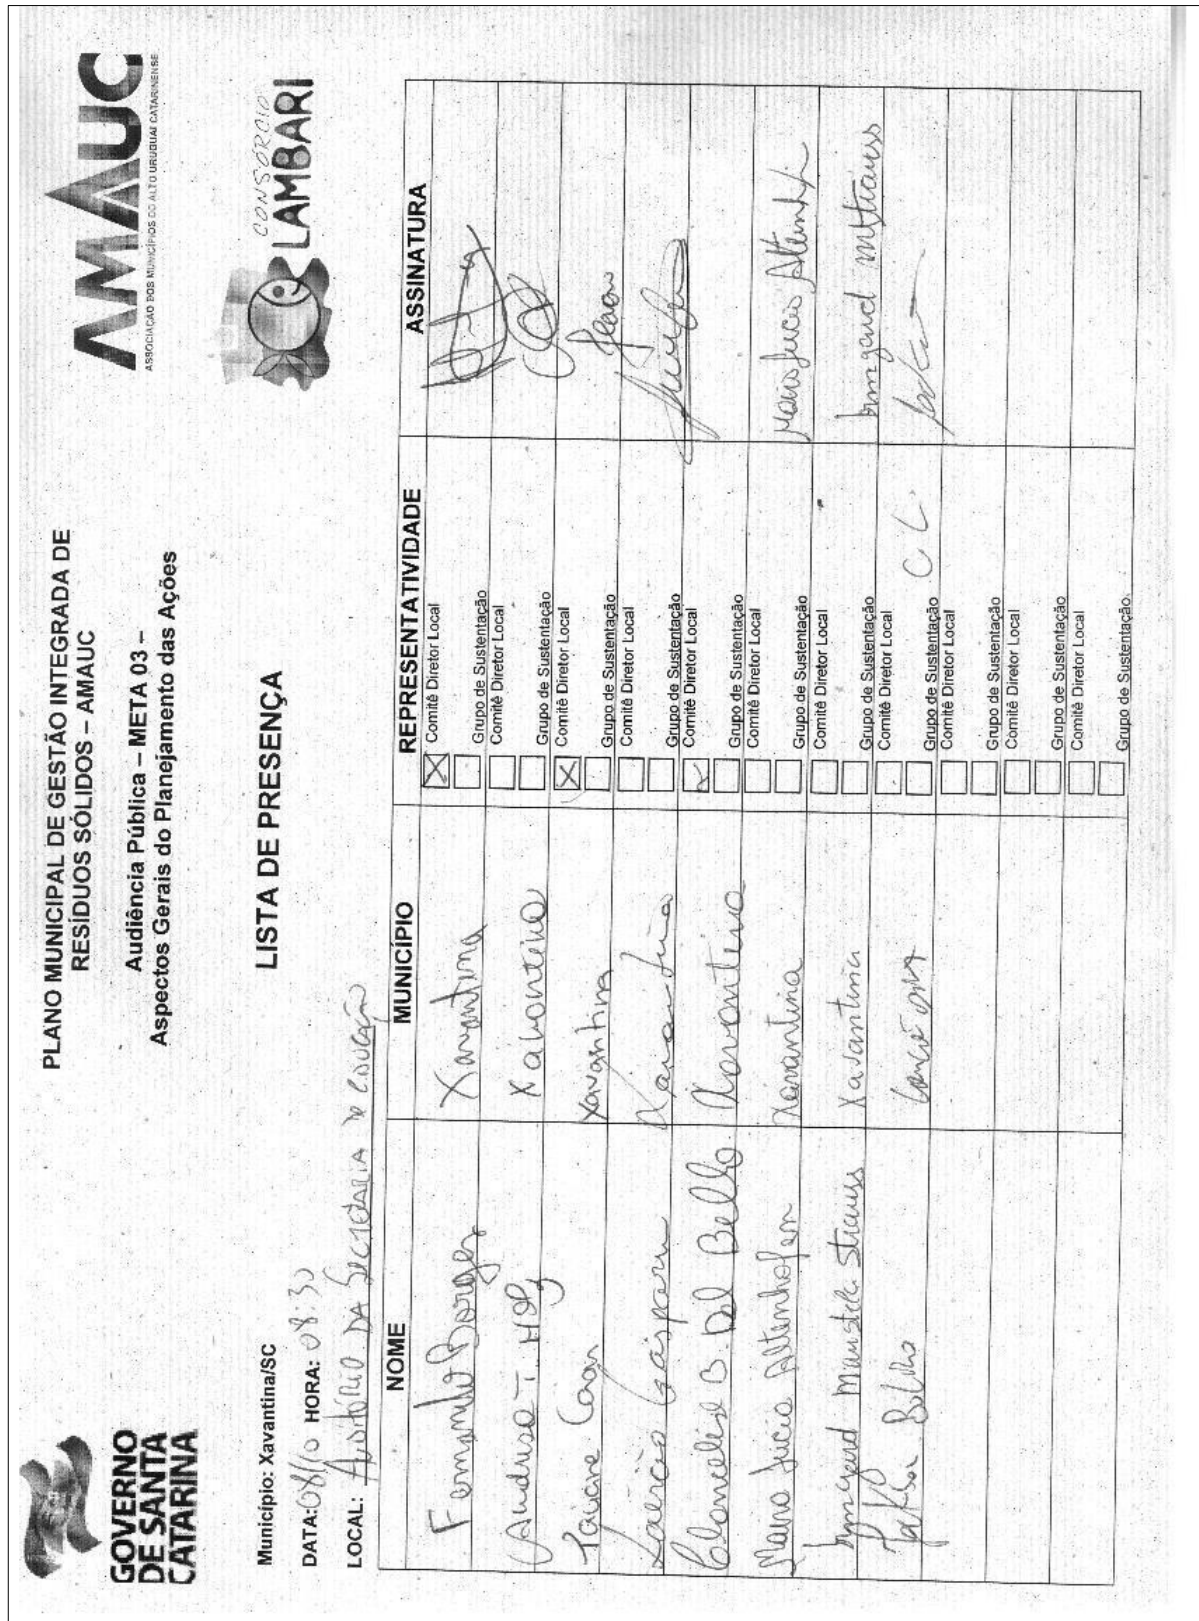 GOVERNO
DE SANTA
CATARINA
PLANO MUNICIPAL DE GESTÃO INTEGRADA DE
RESÍDUOS SÓLIDOS – AMAUC
Audiência Pública – META 03 –
Aspectos Gerais do Planejamento das Ações
AMAUC
ASSOCIAÇÃO DOS MUNICÍPIOS DO ALTO URUGUAI CATARINENSE
CONSÓRCIO
LAMBARI
LISTA DE PRESENÇA
Município: Xavantina/SC
DATA: 08/10 HORA: 08:30
LOCAL: Auditório da Secretaria de Educação
NOME MUNICÍPIO REPRESENTATIVIDADE ASSINATURA
Fernando Borges Xavantina Comitê Diretor Local
Grupo de Sustentação
Andresa T. Xavantina Comitê Diretor Local
Grupo de Sustentação
Xavantina Comitê Diretor Local
Grupo de Sustentação
Laércio Gaspari Xavantina Comitê Diretor Local
Grupo de Sustentação
B. Dal Bello Xavantina Comitê Diretor Local
Grupo de Sustentação
Maria Lucia Altenhofen Xavantina Comitê Diretor Local Maria Lucia
Grupo de Sustentação
Irmgard Strauss Xavantina Comitê Diretor Local Irmgard
Grupo de Sustentação
Comitê Diretor Local C L
Grupo de Sustentação
Comitê Diretor Local
Grupo de Sustentação
Comitê Diretor Local
Grupo de Sustentação
Comitê Diretor Local
Grupo de Sustentação